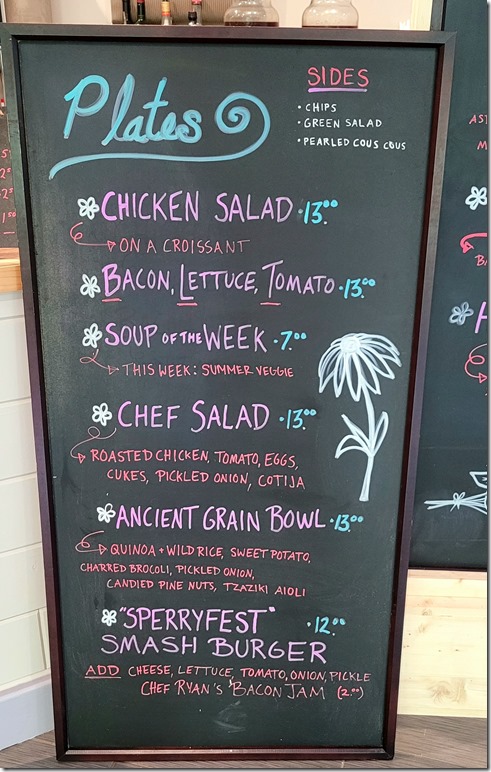 Plates
SIDES
• CHIPS
• GREEN SALAD
• PEARLED COUS COUS
CHICKEN SALAD • 13.00
ON A CROISSANT
BACON, LETTUCE, TOMATO • 13.00
SOUP OF THE WEEK • 7.00
THIS WEEK: SUMMER VEGGIE
CHEF SALAD • 13.00
ROASTED CHICKEN, TOMATO, EGGS,
CUKES, PICKLED ONION, COTIJA
ANCIENT GRAIN BOWL • 13.00
QUINOA + WILD RICE, SWEET POTATO,
CHARRED BROCOLI, PICKLED ONION,
CANDIED PINE NUTS, TZAZIKI AIOLI
"SPERRYFEST" • 12.00
SMASH BURGER
ADD CHEESE, LETTUCE, TOMATO, ONION, PICKLE
CHEF RYAN'S BACON JAM (2.00)